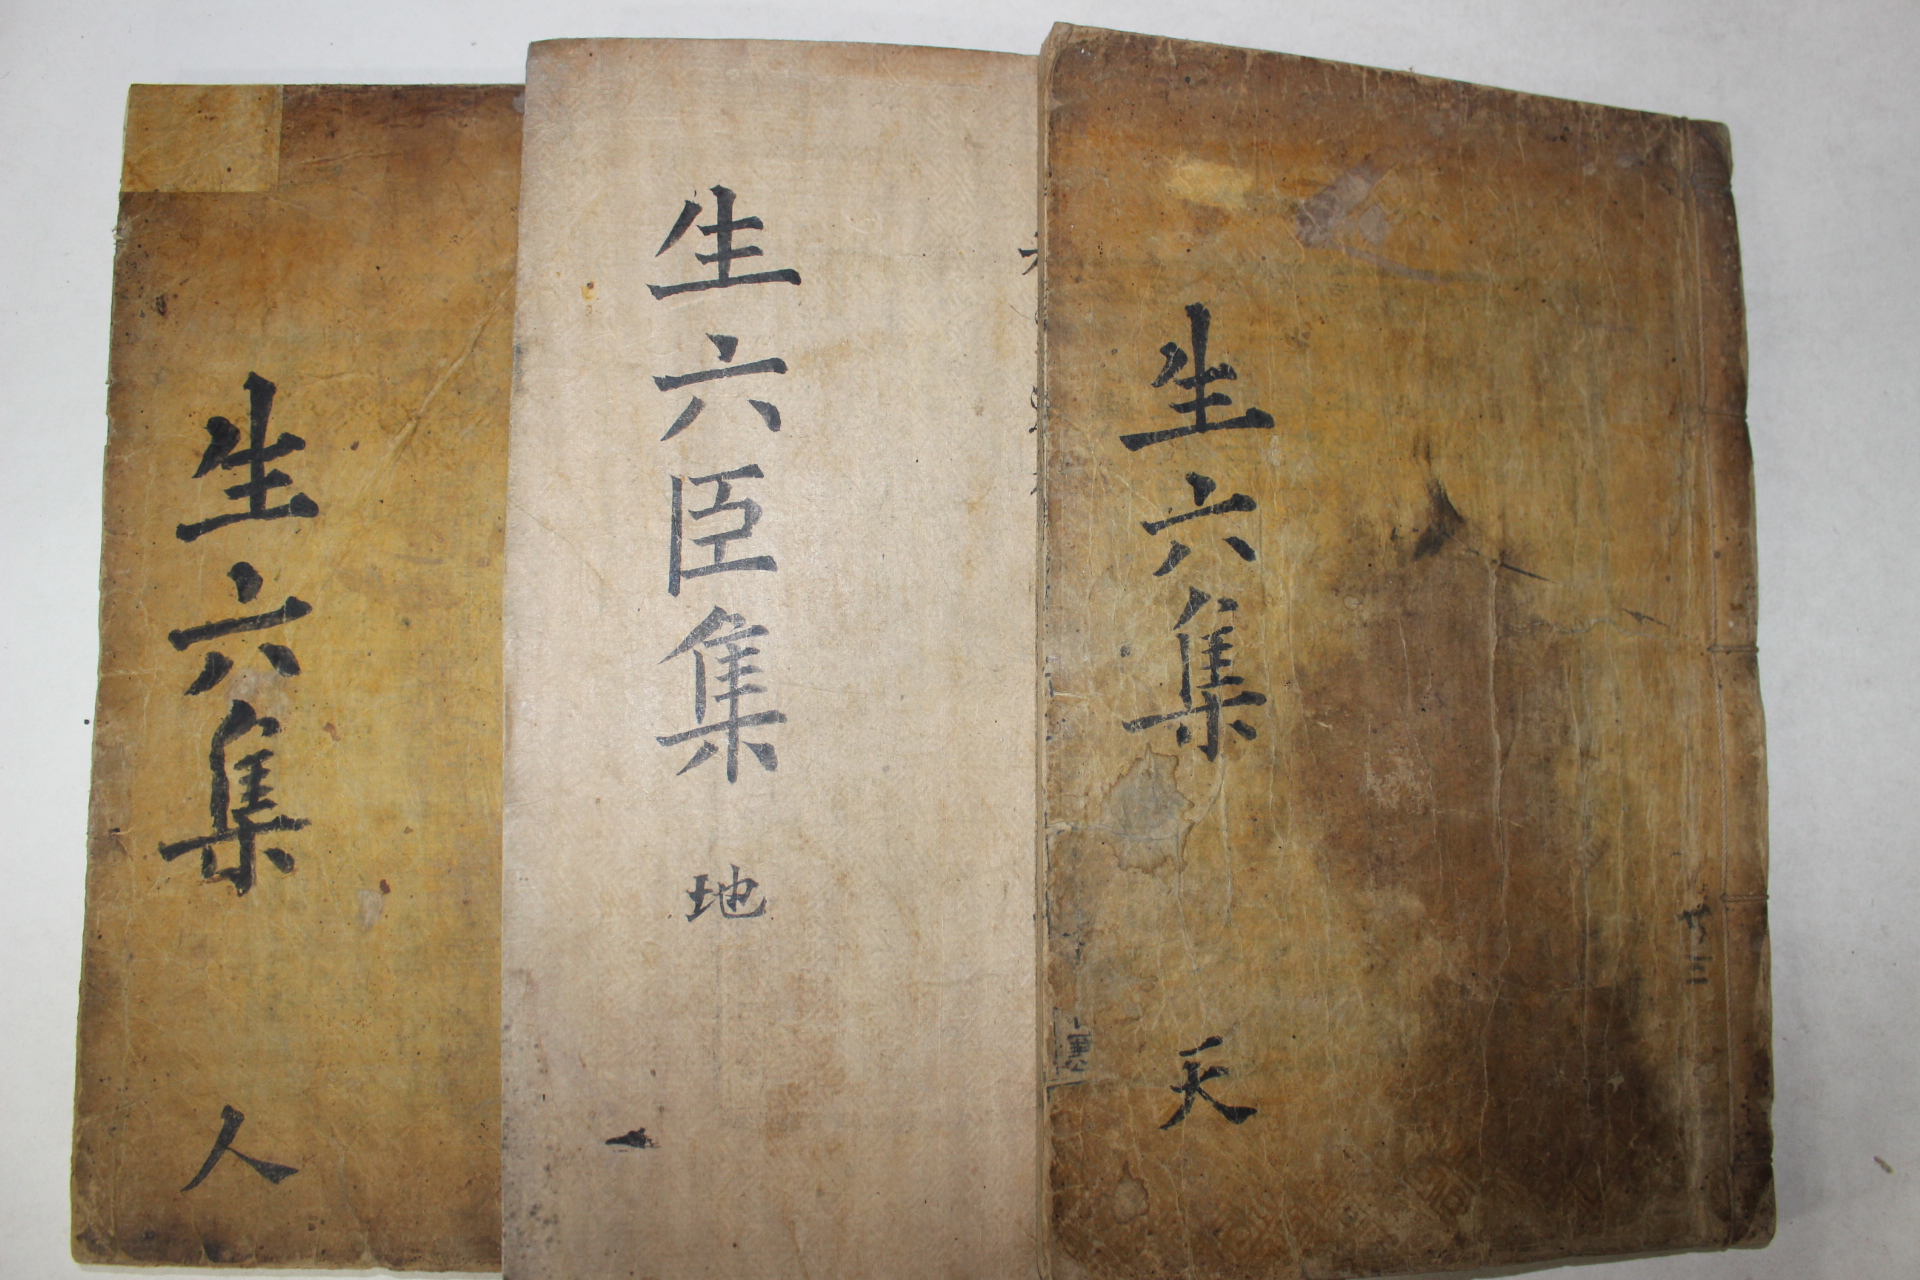 生六集
天
共三
生六臣集
地
生六集
人